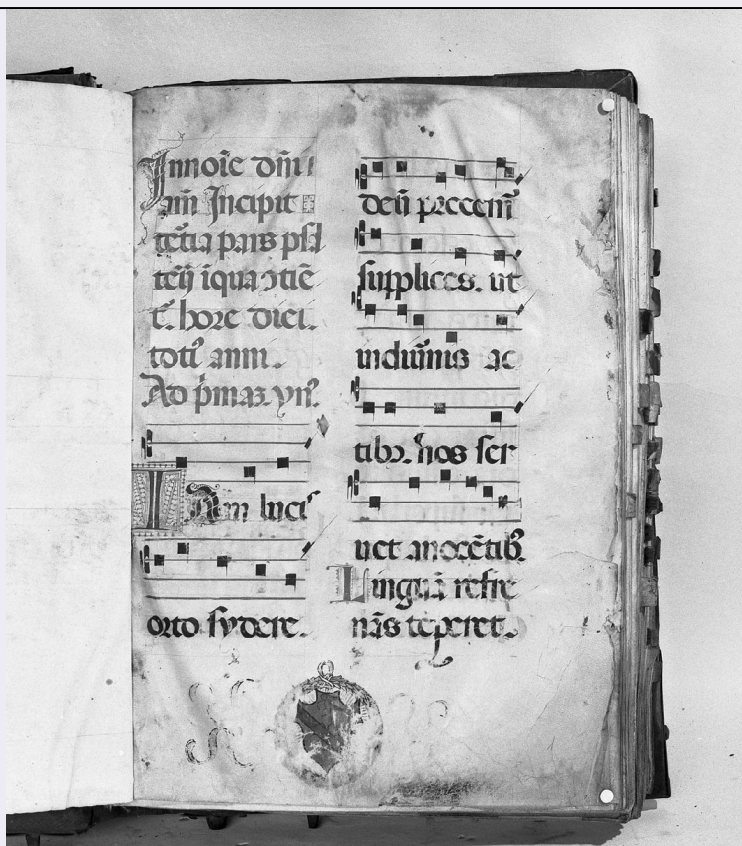 Innoīe dn̄i
am̄ Incipit
tētia pars psl
terij īqua ɔtiē
t̄. hore diei.
toti9 anni.
Ad p̄maʒ. yn̄9.
Iam luciˢ
orto sydere.
deū precem̄
supplices. ut
indiur̄nis ac
tibꝫ. nos ser
uet anocētibꝫ.
Linguā refre
nās tēperet.